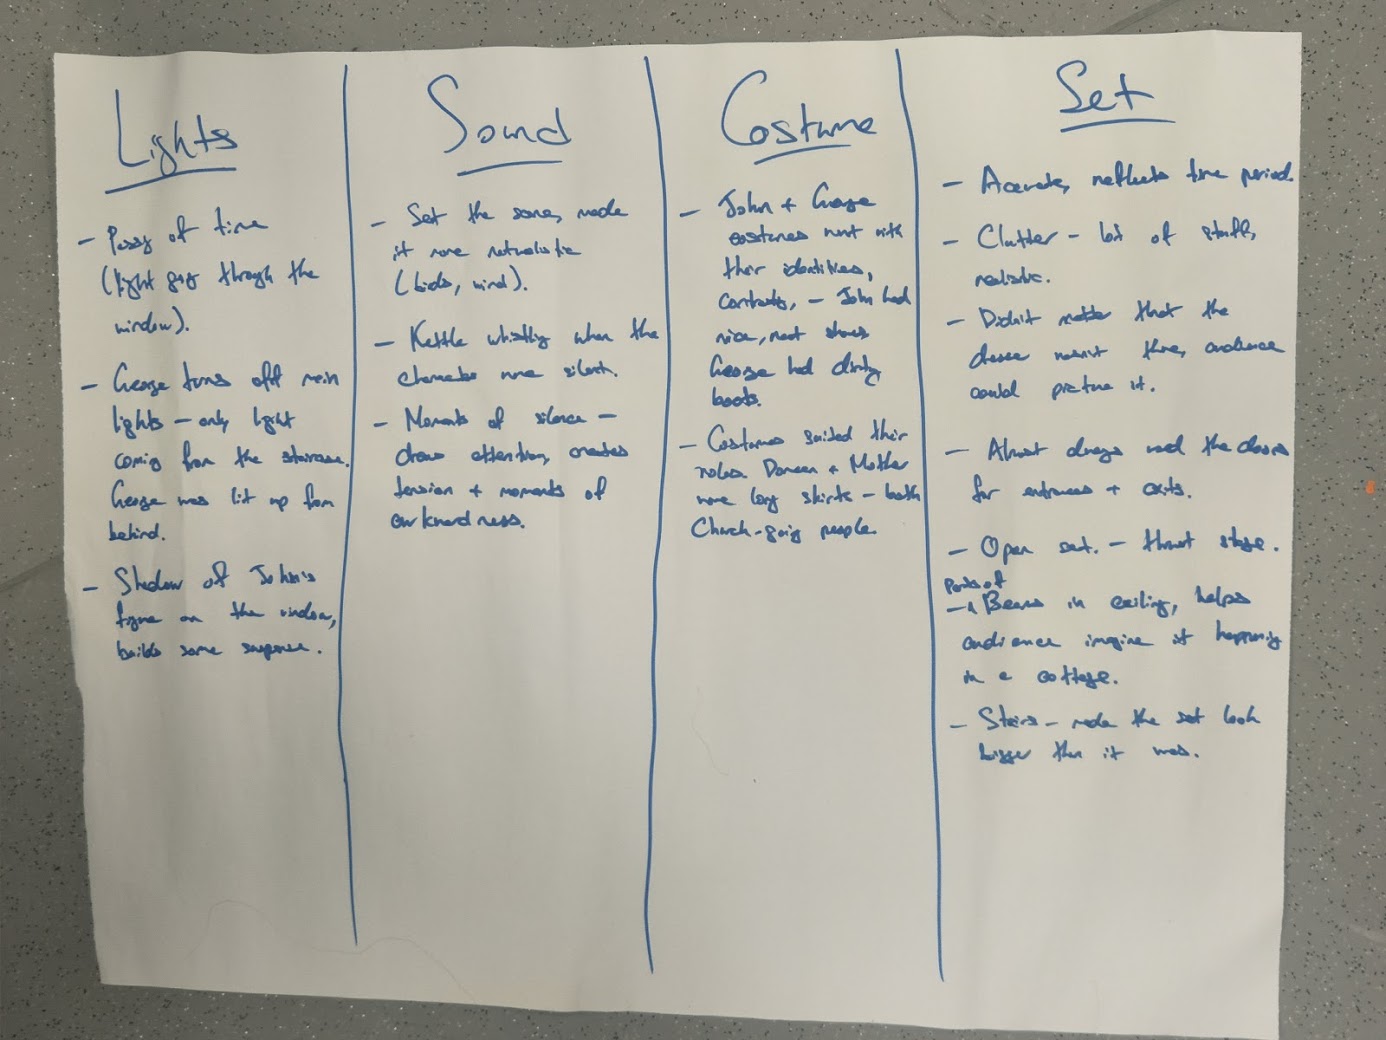 Lights
- Passing of time
(light going through the
window).
- George turns off main
lights - only light
coming from the staircase.
George was lit up from
behind.
- Shadow of John's
figure on the window,
builds some suspense.
Sound
- Set the scene, made
it more naturalistic
(birds, wind).
- Kettle whistling when the
characters were silent.
- Moments of silence -
draws attention, creates
tension + moments of
awkwardness.
Costume
- John + George
costumes went with
their identities,
contrasts, - John had
nice, neat shoes
George had dirty
boots.
- Costumes suited their
roles. Doreen + Mother
wore long skirts - both
Church-going people.
Set
- Accurate, reflects time period.
- Clutter - lot of stuff,
realistic.
- Didn't matter that the
wasn't there, audience
could picture it.
- Almost always used the doors
for entrances + exits.
- Open set. - thrust stage.
Parts of
- ^ Beams in ceiling, helps
audience imagine it happening
in a cottage.
- Stairs - made the set look
bigger than it was.